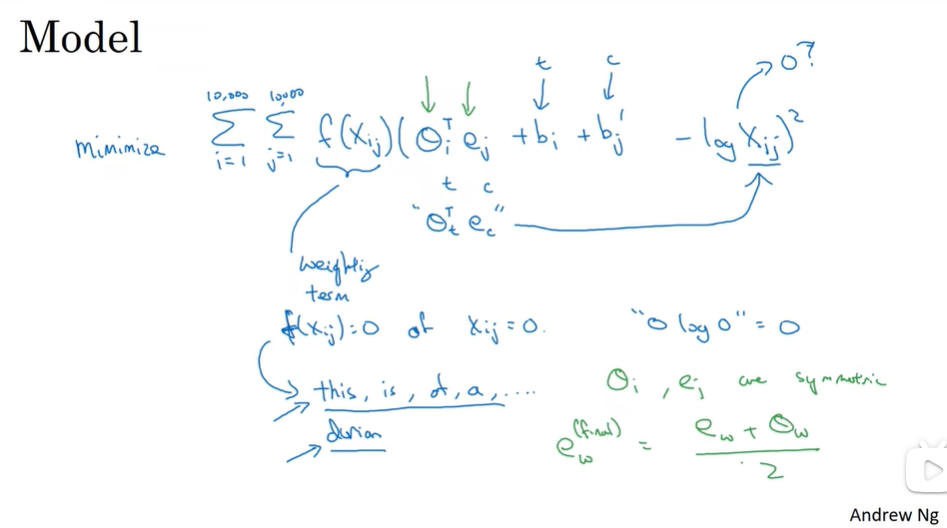 Model
t c 0?
minimize 10,000 Σ i=1 10,000 Σ j=1 f(Xij) (θiᵀ ej + bi + bj' - log Xij)²
t c
"θtᵀ ec"
weighting
term
f(Xij)=0 if Xij=0. "0 log 0" = 0
this, is, of, a, .... θi, ej are symmetric
durian
ew^(final) = (ew + θw) / 2
Andrew Ng